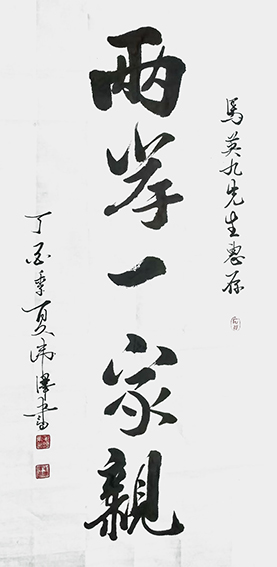 馬英九先生惠存
兩岸一家親
丁酉季夏澤書